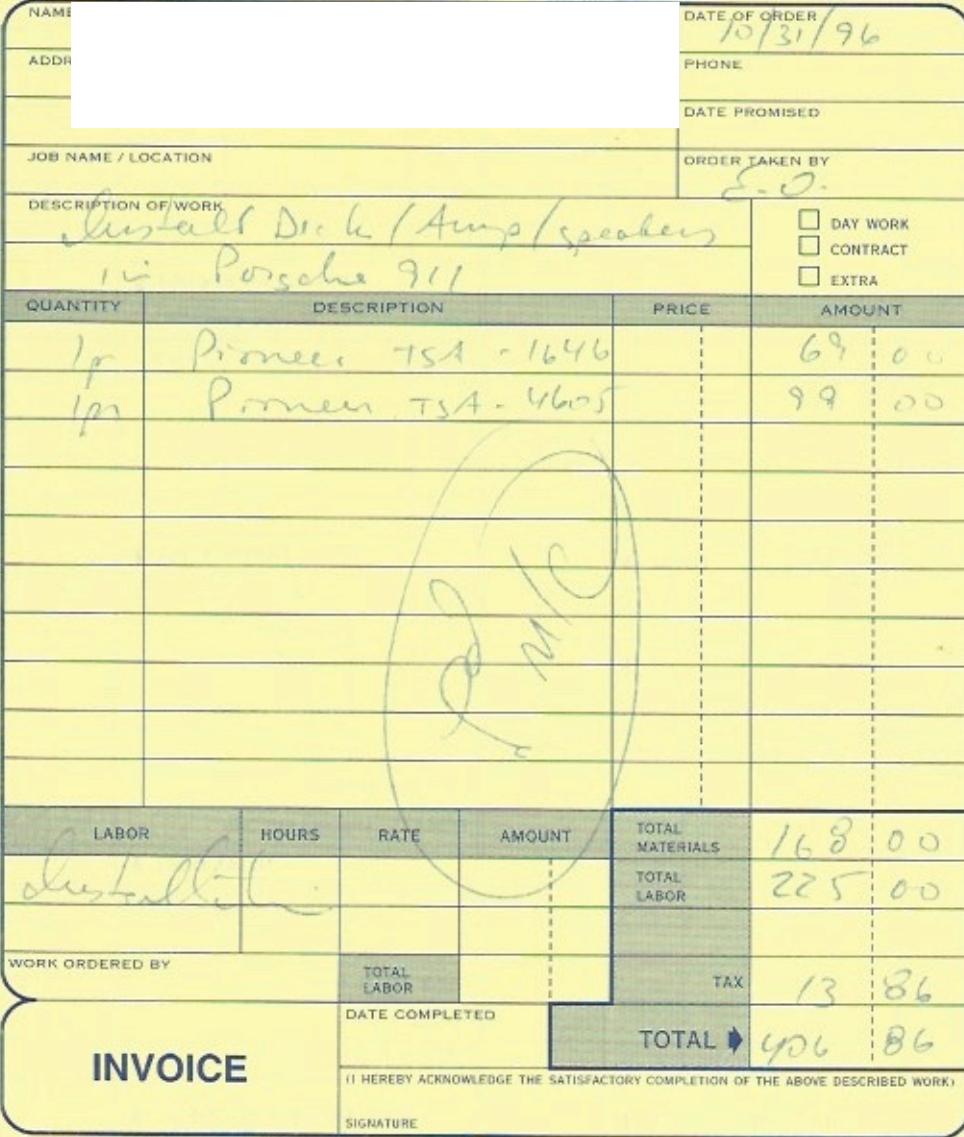 NAME
DATE OF ORDER 10/31/96
ADDR
PHONE
DATE PROMISED
JOB NAME / LOCATION
ORDER TAKEN BY
E.O.
DESCRIPTION OF WORK
Install Deck / Amp / speakers
in Porsche 911
DAY WORK
CONTRACT
EXTRA
QUANTITY DESCRIPTION PRICE AMOUNT
1pr Pioneer TSA-1646 69 00
1pr Pioneer TSA-4605 99 00
Pd
M/C
LABOR HOURS RATE AMOUNT
TOTAL MATERIALS 168 00
Installation
TOTAL LABOR 225 00
WORK ORDERED BY
TOTAL LABOR
TAX 13 86
DATE COMPLETED
TOTAL 406 86
INVOICE
(I HEREBY ACKNOWLEDGE THE SATISFACTORY COMPLETION OF THE ABOVE DESCRIBED WORK)
SIGNATURE